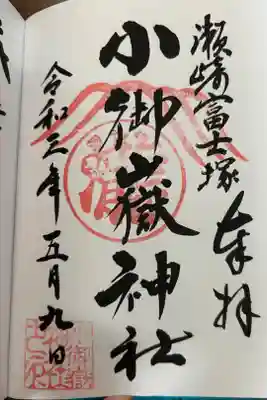 奉拝
瀬崎富士塚
小御嶽神社
令和三年五月九日